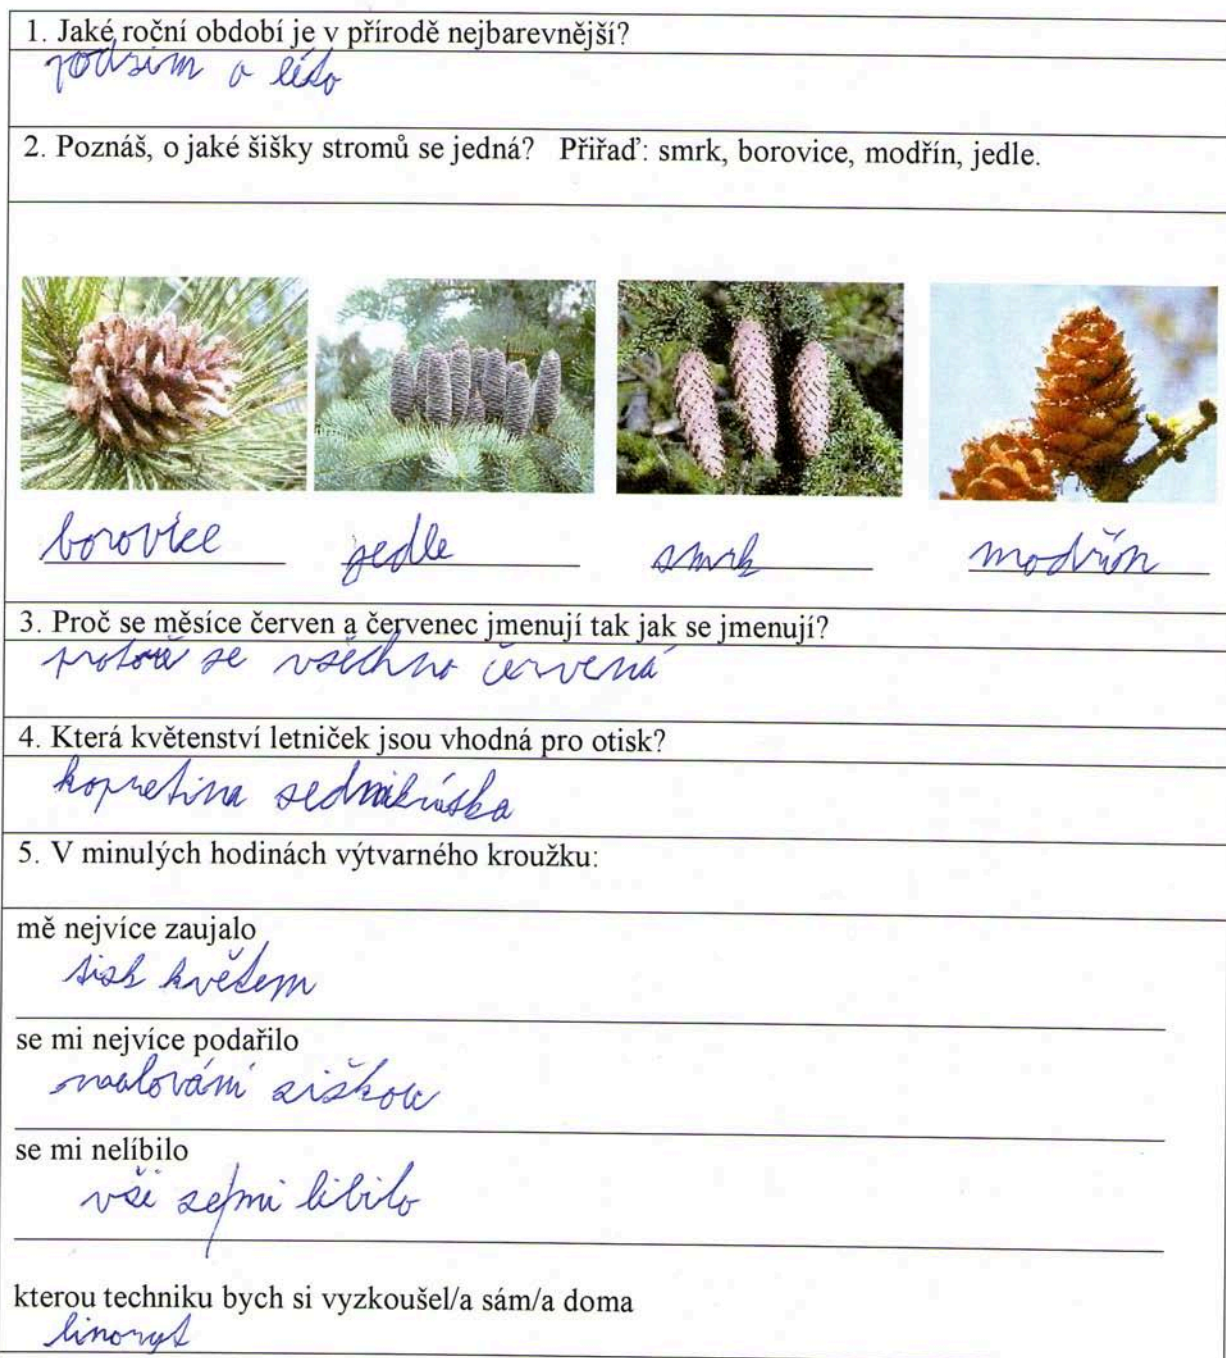 1. Jaké roční období je v přírodě nejbarevnější?
podzim a léto
2. Poznáš, o jaké šišky stromů se jedná? Přiřaď: smrk, borovice, modřín, jedle.
borovice jedle smrk modřín
3. Proč se měsíce červen a červenec jmenují tak jak se jmenují?
protože se všechno červená
4. Která květenství letniček jsou vhodná pro otisk?
kopretina sedmikráska
5. V minulých hodinách výtvarného kroužku:
mě nejvíce zaujalo
tisk květem
se mi nejvíce podařilo
malování šiškou
se mi nelíbilo
vše se mi líbilo
kterou techniku bych si vyzkoušel/a sám/a doma
linoryt